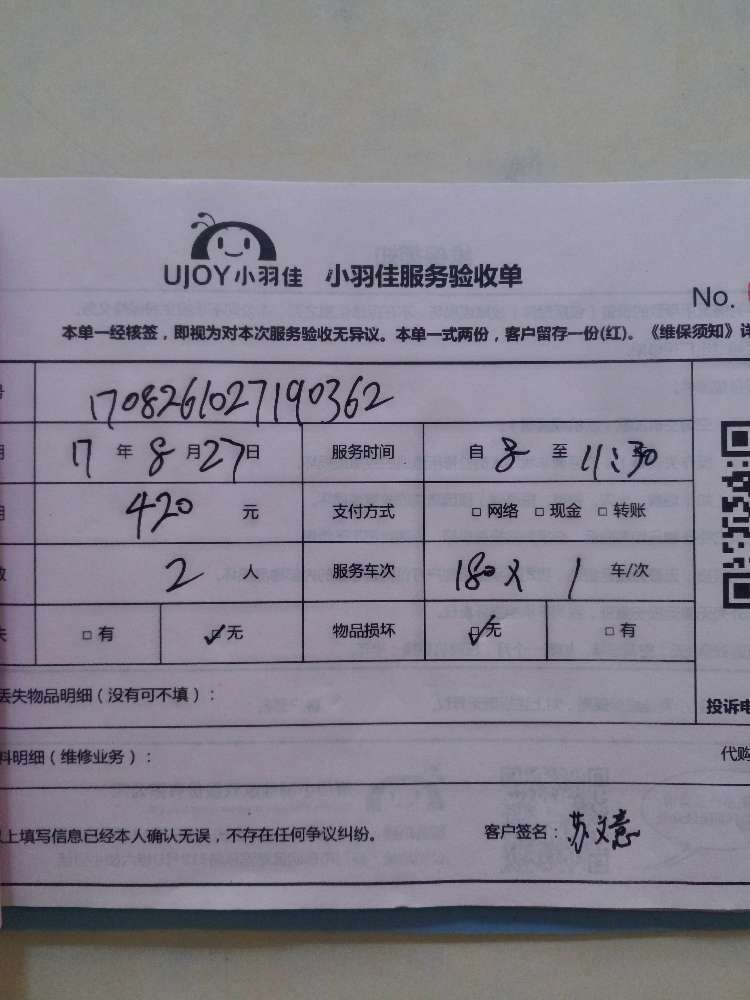 UJOY小羽佳 小羽佳服务验收单
No.
本单一经核签，即视为对本次服务验收无异议。本单一式两份，客户留存一份(红)。《维保须知》详
170826102719036​2
17 年 8 月 27 日 服务时间 自 8 至 11:30
420 元 支付方式 □ 网络 □ 现金 □ 转账
2 人 服务车次 180X 1 车/次
□ 有 ✓□ 无 物品损坏 ✓□ 无 □ 有
丢失物品明细（没有可不填）：
投诉电
料明细（维修业务）：
代购
以上填写信息已经本人确认无误，不存在任何争议纠纷。 客户签名：苏文意